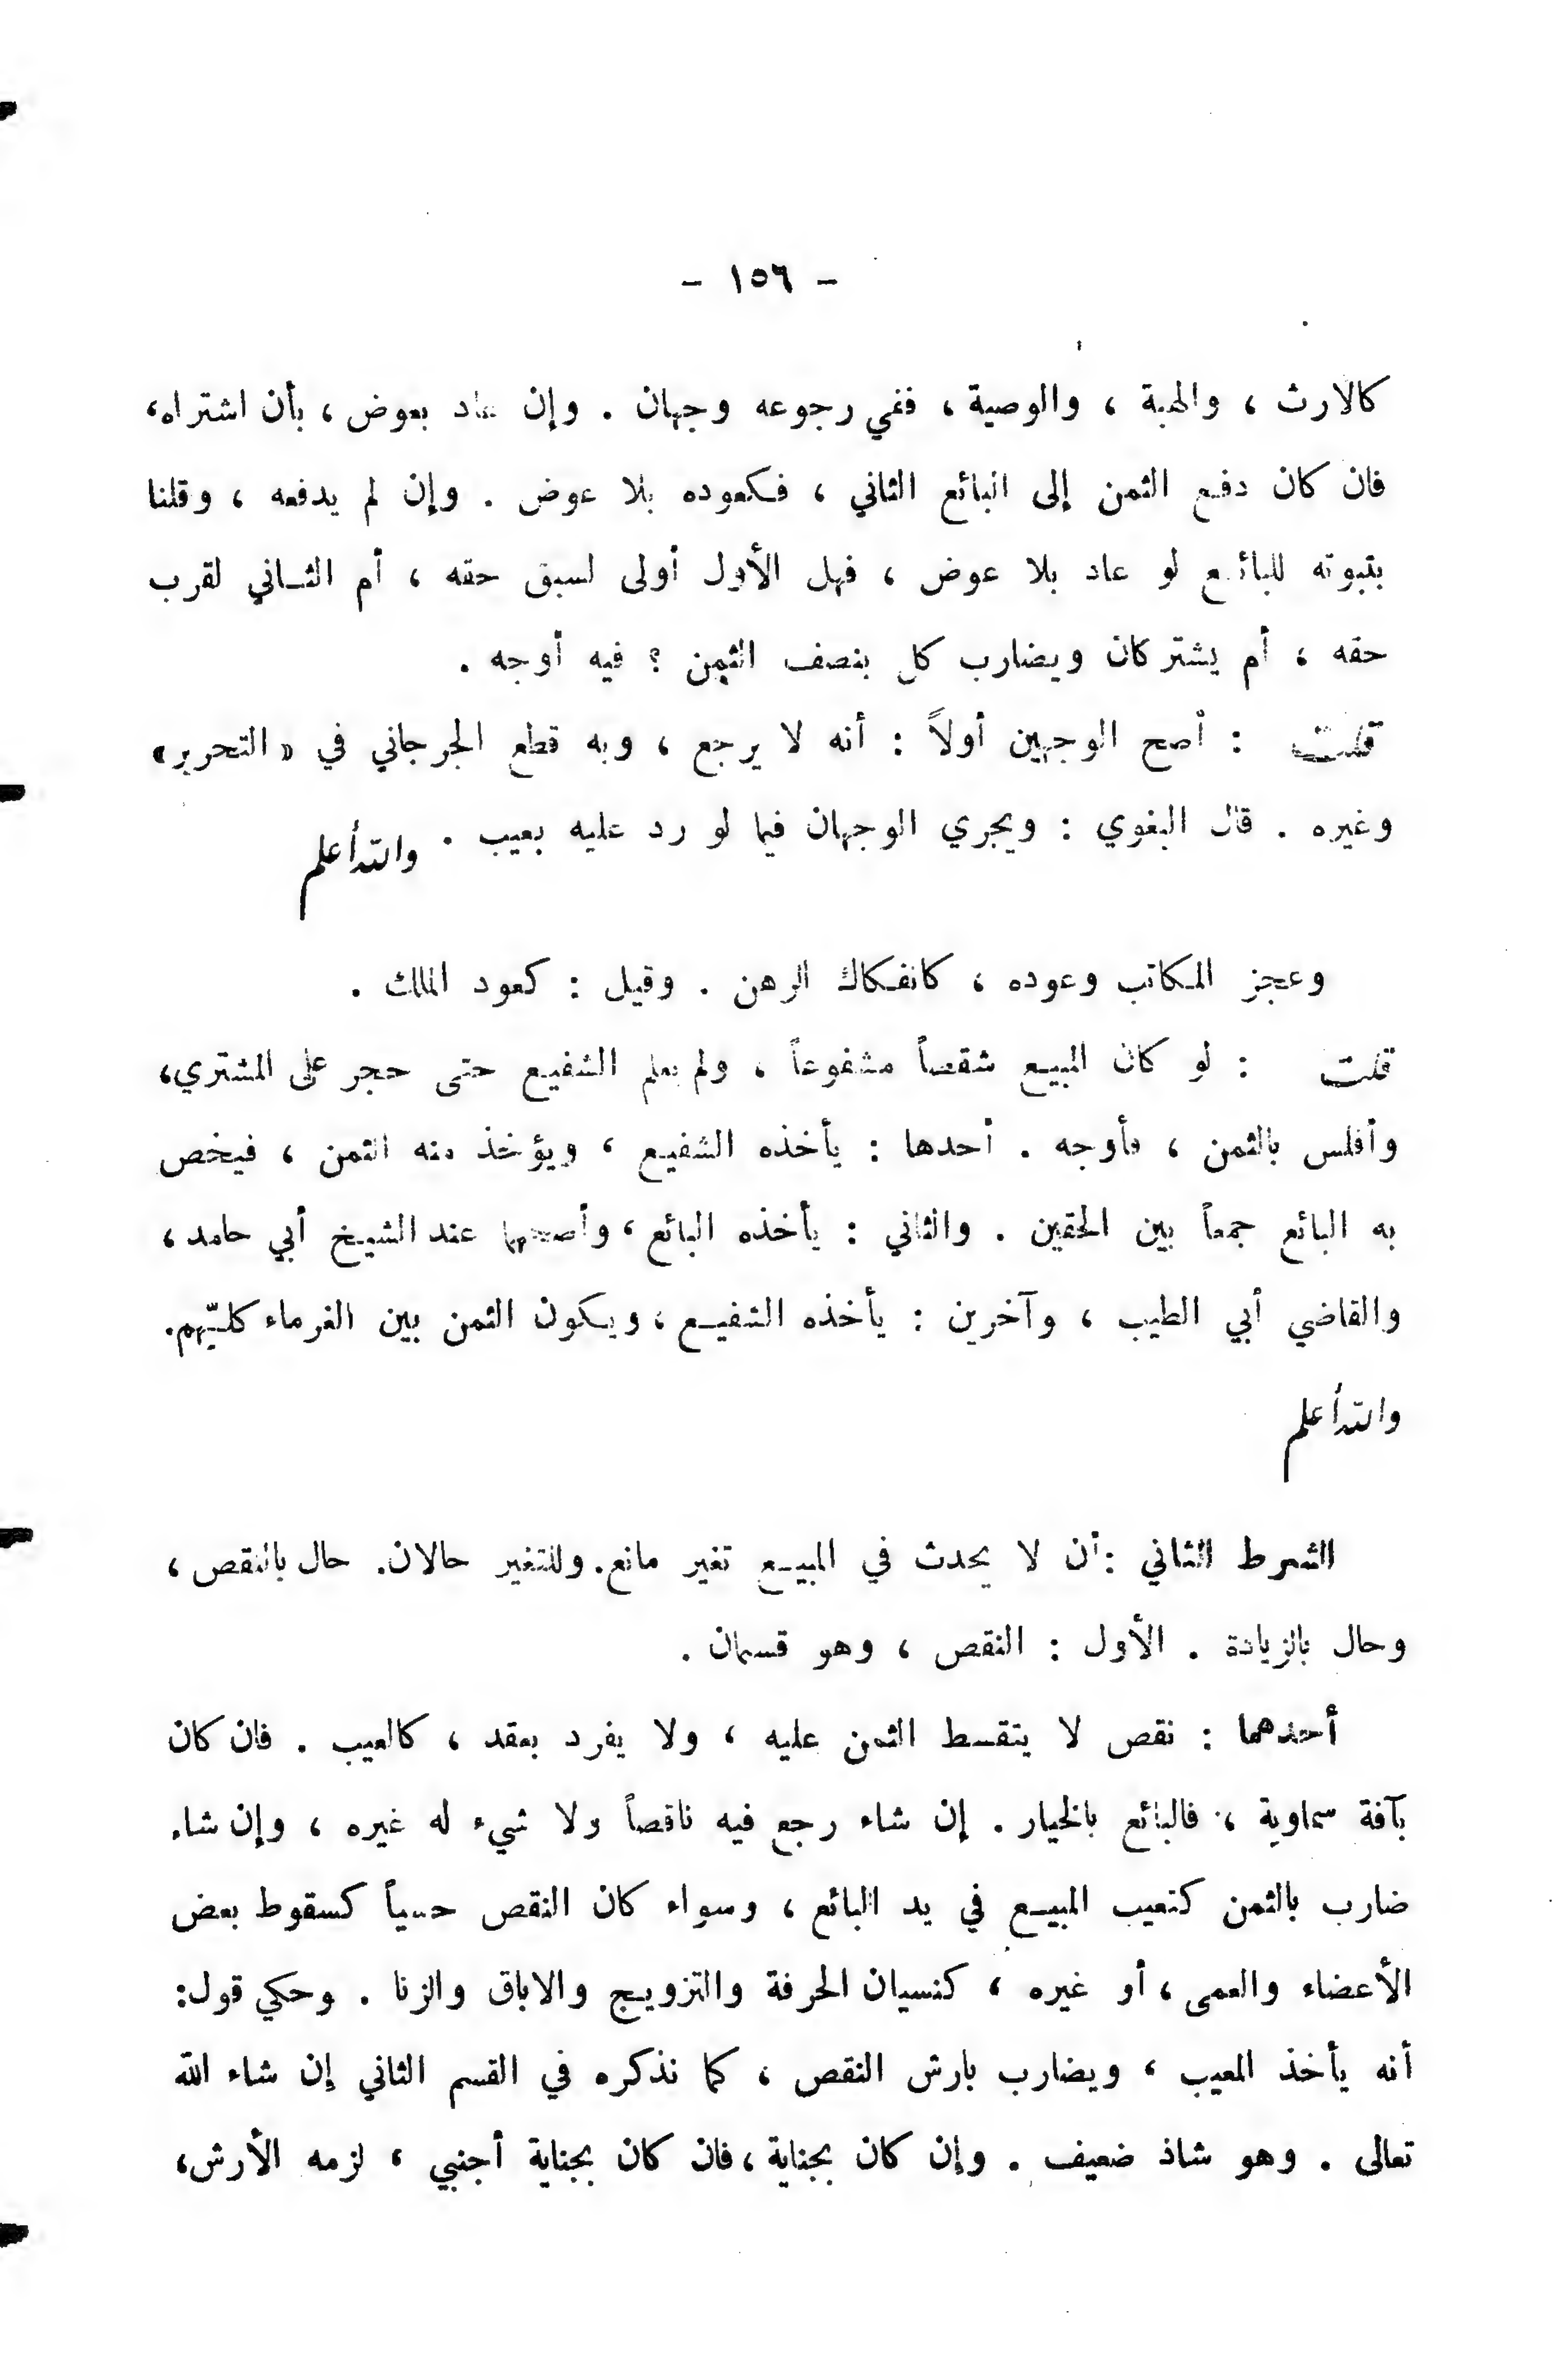 - ١٥٦ -
كالارث ، والهبة ، والوصية ، ففي رجوعه وجهان . وإن عاد بعوض ، بأن اشتراه،
فان كان دفع الثمن إلى البائع الثاني ، فكعوده بلا عوض . وإن لم يدفعه ، وقلنا
بثبوته للبائع لو عاد بلا عوض ، فهل الأول أولى لسبق حقه ، أم الثاني لقرب
حقه ، أم يشتركان ويضارب كل بنصف الثمن ؟ فيه أوجه .
قلت : أصح الوجهين أولاً : أنه لا يرجع ، وبه قطع الجرجاني في « التحرير »
وغيره . قال البغوي : ويجري الوجهان فيما لو رد عليه بعيب . والله أعلم
وعجز المكاتب وعوده ، كانفكاك الرهن . وقيل : كعود الملك .
قلت : لو كان المبيع شقصاً مشفوعاً ، ولم يعلم الشفيع حتى حجر على المشتري،
وأفلس بالثمن ، فأوجه . أحدها : يأخذه الشفيع ، ويؤخذ منه الثمن ، فيخص
به البائع جمعاً بين الحقين . والثاني : يأخذه البائع ، وأصحها عند الشيخ أبي حامد ،
والقاضي أبي الطيب ، وآخرين : يأخذه الشفيع ، ويكون الثمن بين الغرماء كلّهم.
والله أعلم
الشرط الثاني : أن لا يحدث في المبيع تغير مانع. وللتغير حالان. حال بالنقص ،
وحال بالزيادة . الأول : النقص ، وهو قسمان .
أحدهما : نقص لا يتقسط الثمن عليه ، ولا يفرد بعقد ، كالعيب . فان كان
بآفة سماوية ، فالبائع بالخيار . إن شاء رجع فيه ناقصاً ولا شيء له غيره ، وإن شاء
ضارب بالثمن كتعيب المبيع في يد البائع ، وسواء كان النقص حسياً كسقوط بعض
الأعضاء والعمى ، أو غيره ، كنسيان الحرفة والتزويج والاباق والزنا . وحكي قول:
أنه يأخذ المعيب ، ويضارب بارش النقص ، كما نذكره في القسم الثاني إن شاء الله
تعالى . وهو شاذ ضعيف . وإن كان بجناية ، فان كان بجناية أجنبي ، لزمه الأرش،